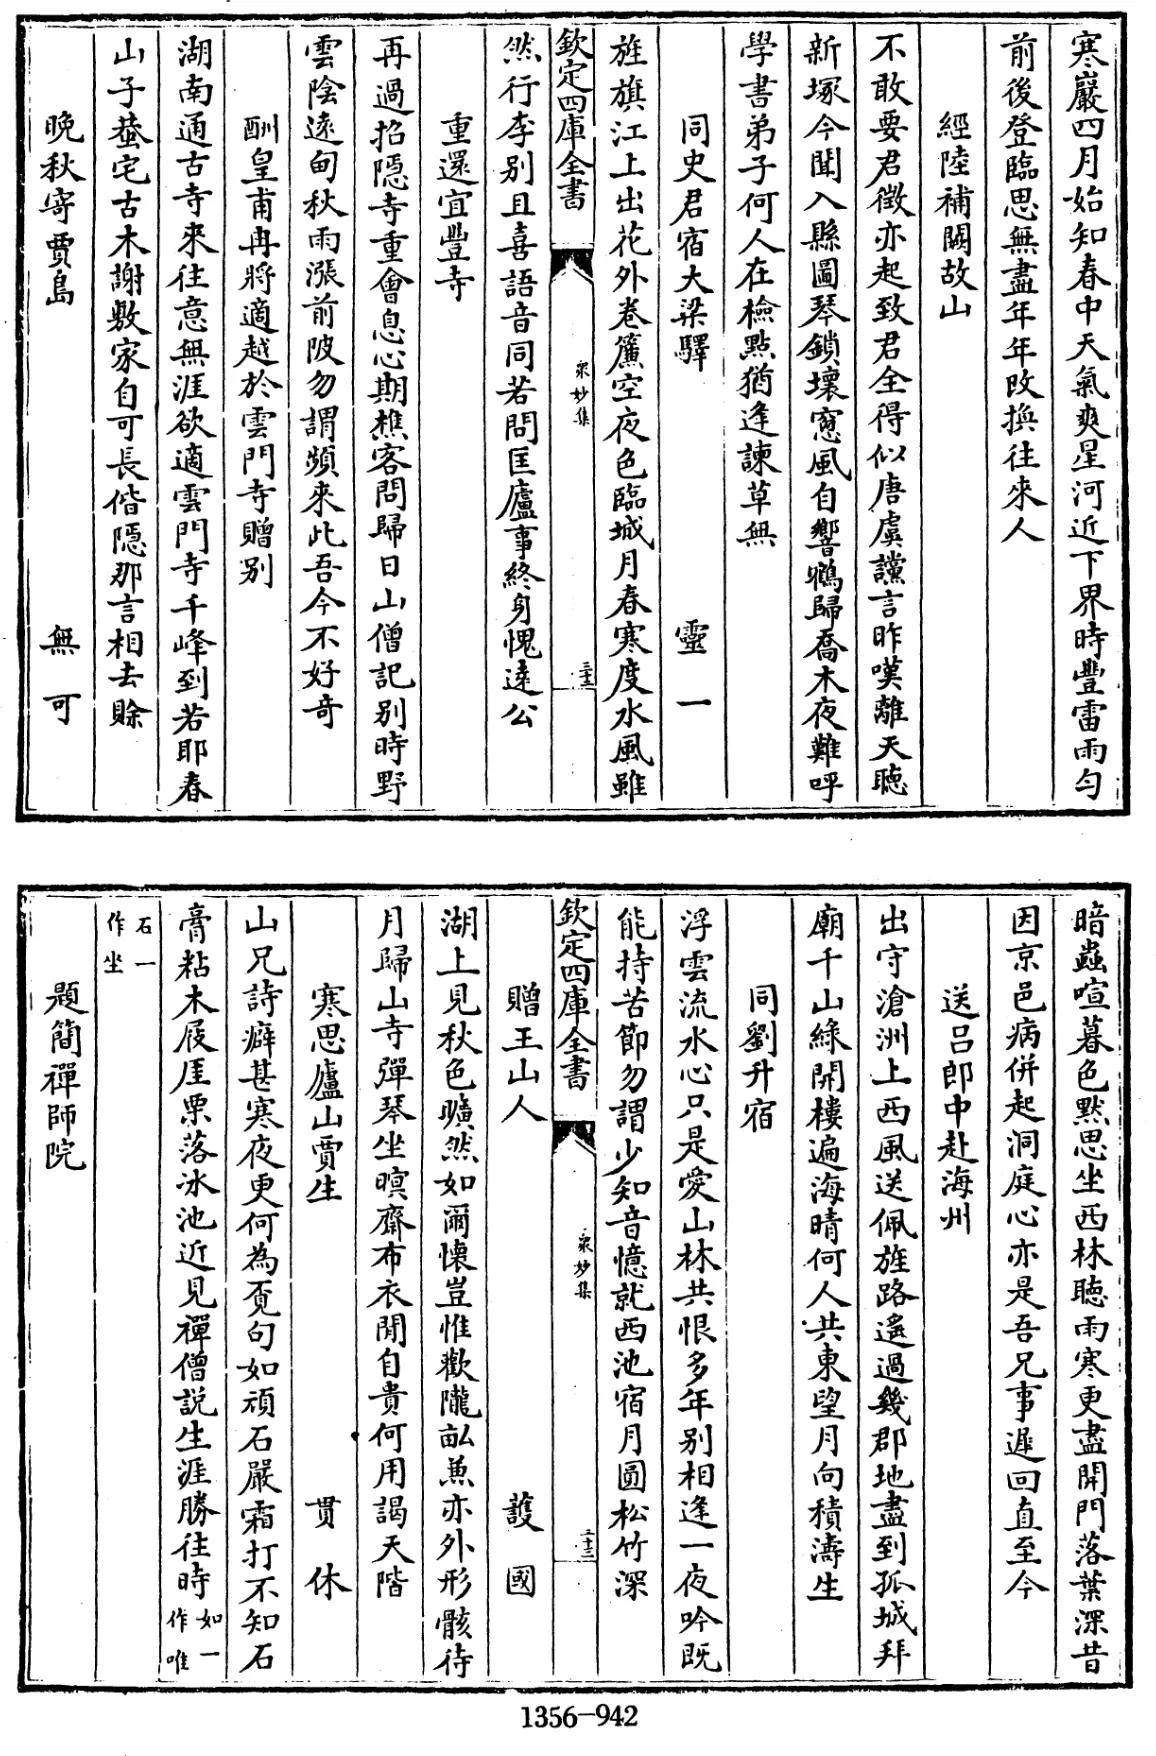 寒巖四月始知春中天氣爽星河近下界時豐雷雨勻
前後登臨思無盡年年改換往來人
經陸補闕故山
不敢要君徵亦起致君全得似唐虞讜言昨嘆離天聴
新塚今聞入縣圖琴鎖壞窻風自響鶴歸喬木夜難呼
學書弟子何人在檢點猶逢諫草無
同史君宿大梁驛 靈一
旌旗江上出花外卷簾空夜色臨城月春寒度水風雖
欽定四庫全書 衆妙集
然行李别且喜語音同若問匡廬事終身愧逺公
重還宜豐寺
再過招隠寺重會息心期樵客問歸日山僧記别時野
雲陰逺甸秋雨漲前陂勿謂頻來此吾今不好奇
酬皇甫冉將適越於雲門寺贈别
湖南通古寺來往意無涯欲適雲門寺千峰到若耶春
山子蓺宅古木謝敷家自可長偕隠那言相去賒
晩秋寄賈島 無可
暗蟲喧暮色黙思坐西林聴雨寒更盡開門落葉深昔
因京邑病併起洞庭心亦是吾兄事遲回直至今
送吕郎中赴海州
出守滄洲上西風送佩旌路遥過幾郡地盡到孤城拜
廟千山緑開樓遍海晴何人共東望月向積濤生
同劉升宿
浮雲流水心只是愛山林共恨多年别相逢一夜吟既
能持苦節勿謂少知音憶就西池宿月圓松竹深
欽定四庫全書 衆妙集 三十三
贈王山人 護國
湖上見秋色曠然如爾懐豈惟歡隴畝兼亦外形骸待
月歸山寺彈琴坐暝齋布衣閒自貴何用謁天階
寒思廬山賈生 貫休
山兄詩癖甚寒夜更何為覔句如頑石嚴霜打不知石
膏粘木屐厓栗落氷池近見禪僧説生涯勝往時如一作唯
石一作坐
題簡禪師院
1356-942